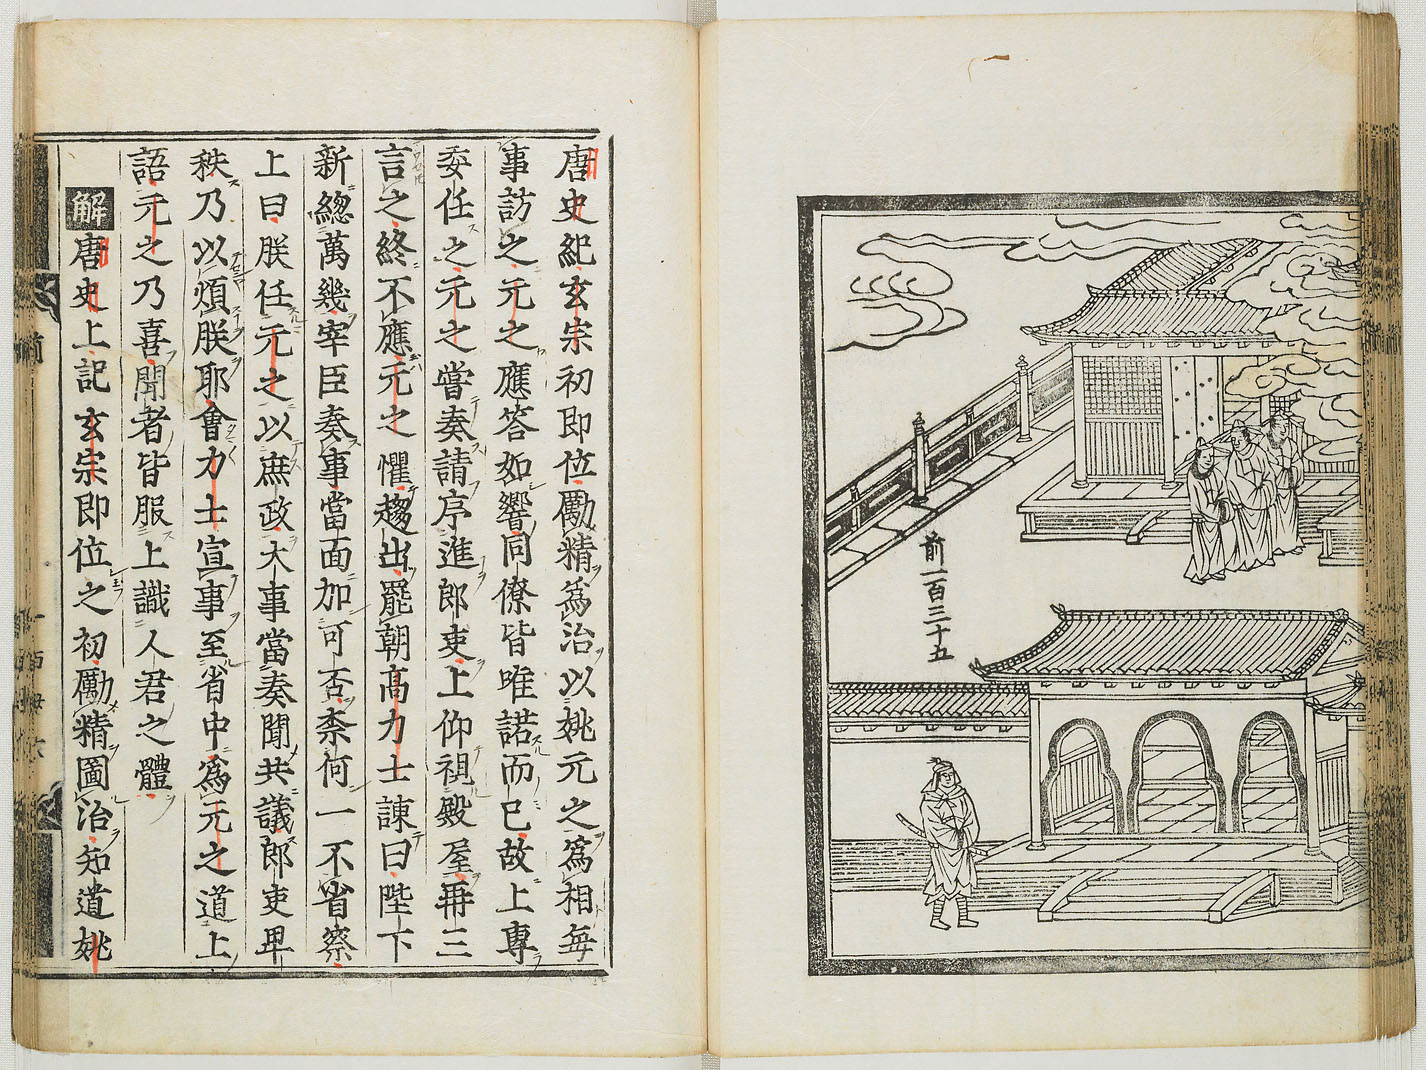 前一百三十五
唐史紀玄宗初即位勵精爲治以姚元之爲相每
事訪之元之應答如響同僚皆唯諾而已故上專
委任之元之嘗奏請序進郎吏上仰視殿屋再三
言之終不應元之懼趨出罷朝高力士諫曰陛下
新總萬幾宰臣奏事當面加可否柰何一不省察
上曰朕任元之以庶政大事當奏聞共議郎吏卑
秩乃以煩朕耶會力士宣事至省中爲元之道上
語元之乃喜聞者皆服上識人君之體
解唐史上記玄宗即位之初勵精圖治知道姚